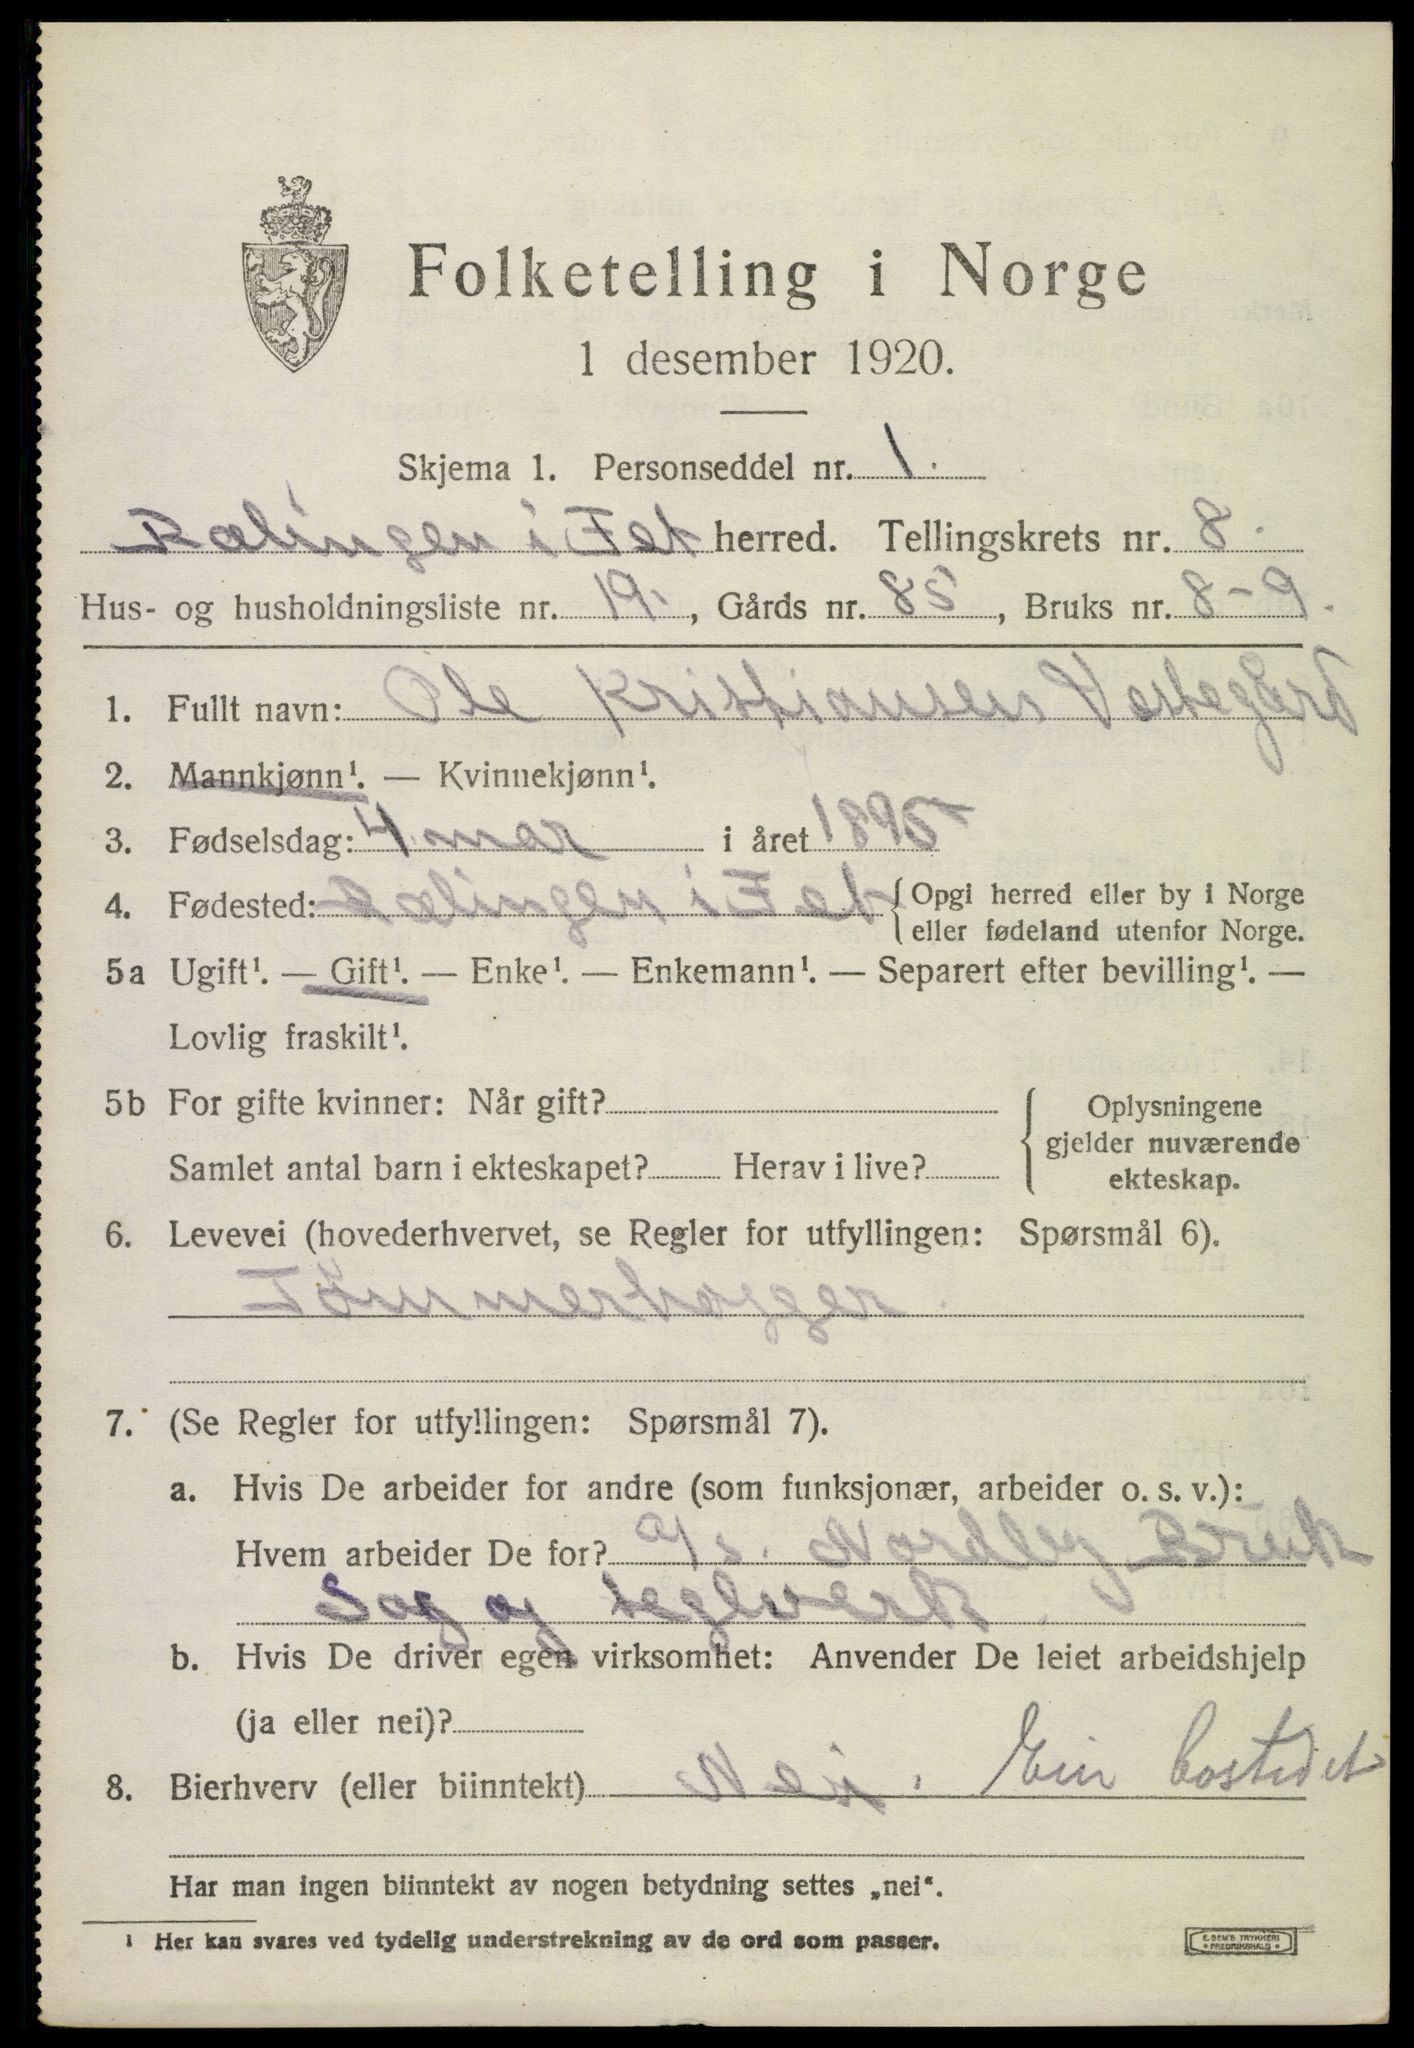 Folketelling i Norge
1 desember 1920.
Skjema 1. Personseddel nr. 1.
Rælingen i Fet herred. Tellingskrets nr. 8.
Hus- og husholdningsliste nr. 19., Gårds nr. 85, Bruks nr. 8-9.
1. Fullt navn: Ole Kristiansen Vestegård
2. Mannkjønn¹. — Kvinnekjønn¹.
3. Fødselsdag: 4 mar i året 1895
4. Fødested: Rælingen i Fet { Opgi herred eller by i Norge
eller fødeland utenfor Norge.
5a Ugift¹. — Gift¹. — Enke¹. — Enkemann¹. — Separert efter bevilling¹. —
Lovlig fraskilt¹.
5b For gifte kvinner: Når gift? { Oplysningene
gjelder nuværende
ekteskap.
Samlet antal barn i ekteskapet? Herav i live?
6. Levevei (hovederhvervet, se Regler for utfyllingen: Spørsmål 6).
Tömmerhogger.
7. (Se Regler for utfyllingen: Spørsmål 7).
a. Hvis De arbeider for andre (som funksjonær, arbeider o. s. v.):
Hvem arbeider De for? A/s. Nordby Bruk
Sag og teglverk.
b. Hvis De driver egen virksomhet: Anvender De leiet arbeidshjelp
(ja eller nei)?
8. Bierhverv (eller biinntekt) Nei.
Har man ingen biinntekt av nogen betydning settes „nei“.
¹ Her kan svares ved tydelig understrekning av de ord som passer.
E. SEM'S TRYKKERI
FREDRIKSHALD